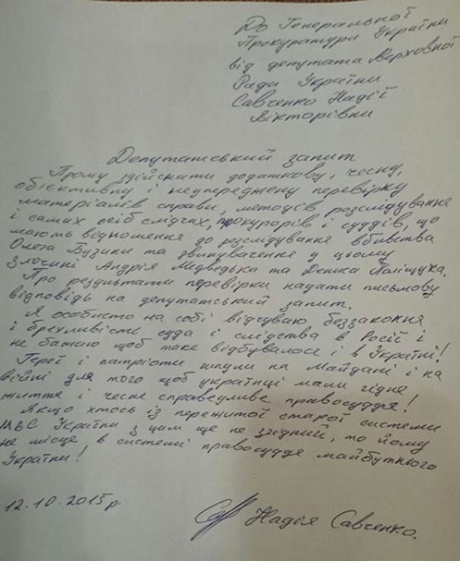 До Генеральної
Прокуратури України
від депутата Верховної
Ради України
Савченко Надії
Вікторівни
Депутатський запит
Прошу здійснити додаткову, чесну,
об'єктивну і неупереджену перевірку
матеріалів справи, методів розслідування
і самих осіб слідчих, прокурорів і суддів, що
мають відношення до розслідування вбивства
Олега Бузини та звинувачення у цьому
злочині Андрія Медведька та Дениса Поліщука.
Про результати перевірки надати письмову
відповідь на депутатський запит.
Я особисто на собі відчуваю беззаконня
і брехливість суда і слідства в Росії і
не бажаю щоб таке відбувалося і в Україні!
Герої і патріоти йшли на Майдані і на
війні для того щоб українці мали гідне
життя і чесне справедливе правосуддя!
Якщо хтось із пережитої старої системи
МВС України з цим ще не згідний, то йому
не місце в системі правосуддя майбутнього
України!
12.10.2015р. Надія Савченко.